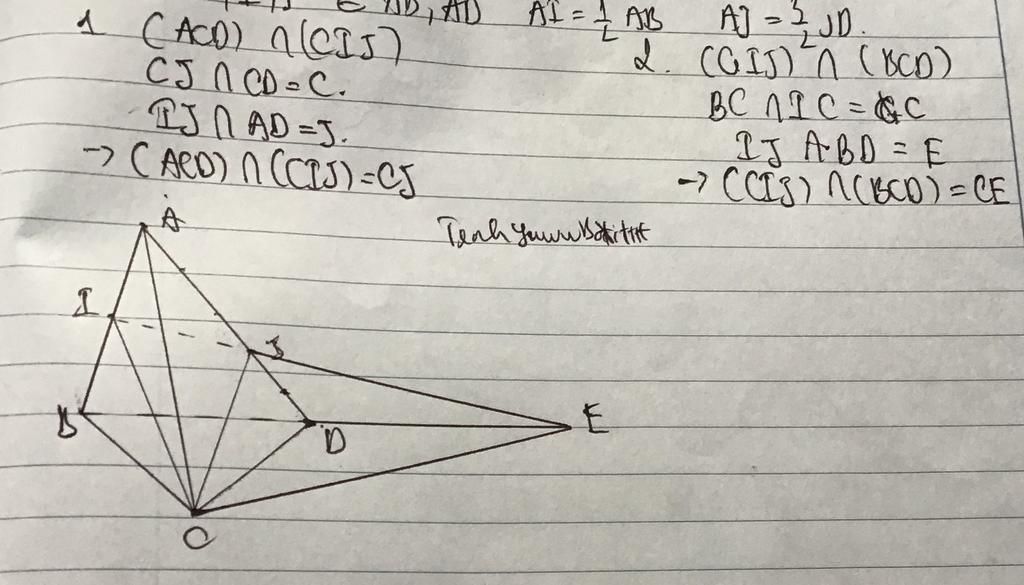 ∈ AB, AD AI = 1/2 AB AJ = 3/2 JD.
1 (ACD) ∩ (CIJ)
CJ ∩ CD = C.
IJ ∩ AD = J.
→ (ACD) ∩ (CIJ) = CJ
2. (CIJ) ∩ (BCD)
BC ∩ IC = C
IJ ∩ BD = E
→ (CIJ) ∩ (BCD) = CE
A
I
J
B
D
E
C